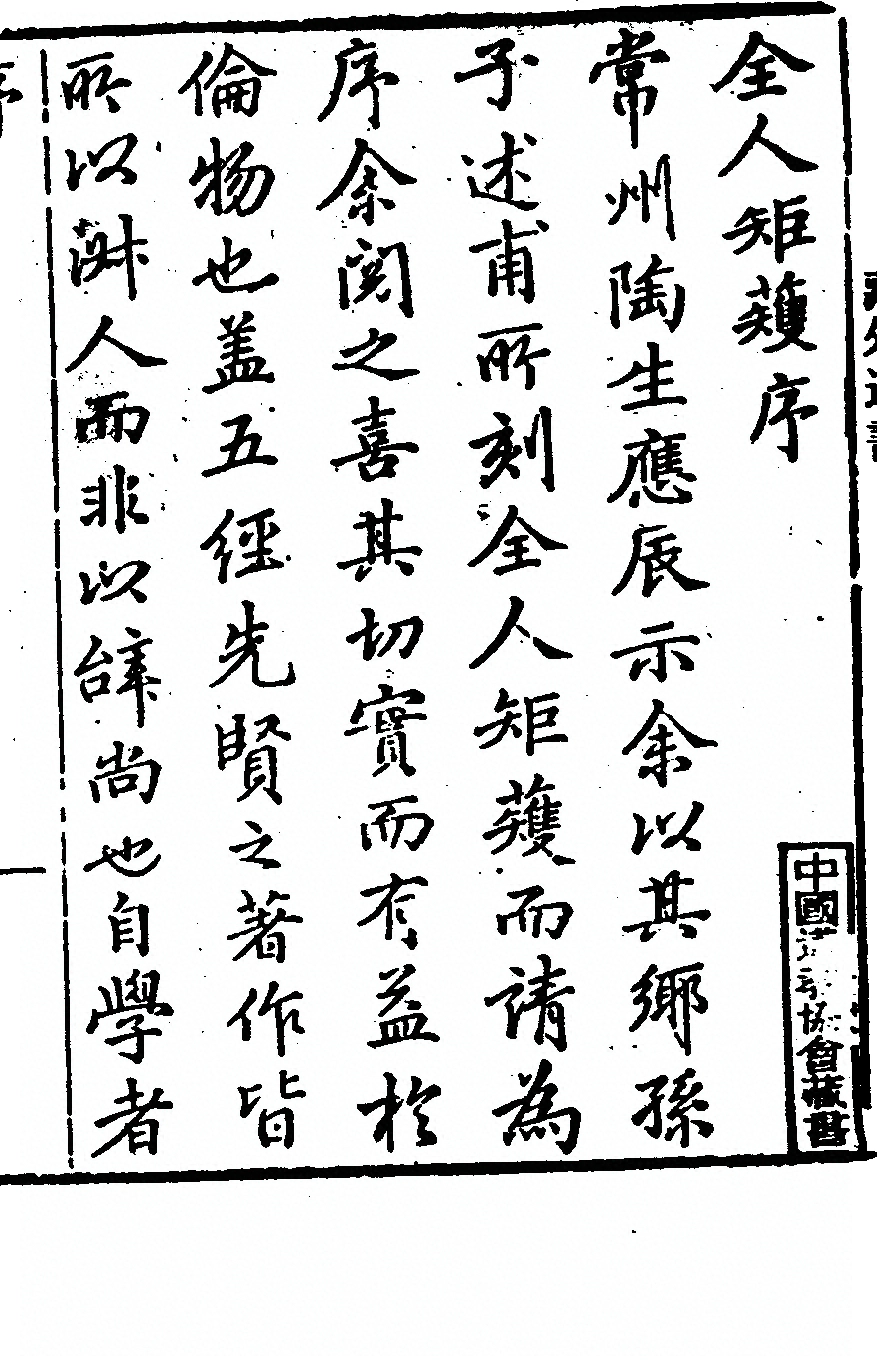 全人矩矱序
常州陶生應辰示余以其鄉孫
子述甫所刻全人矩矱而請為
序余閱之喜其切實而有益於
倫物也蓋五經先賢之著作皆
所以淑人而非以辭尚也自學者
序
中國道 協會藏書